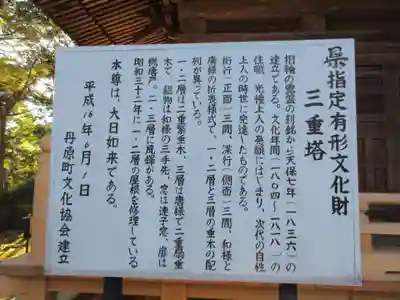 県指定有形文化財
三重塔
相輪の露盤の刻銘から天保七年(一八三六)の
建立である。文化年間(一八〇四〜一八一八)の
住職、光惟上人の発願にはじまり、次代の自性
上人の時世に完逹したものである。
桁行(正面)三間、深行(側面)三間、和様と
唐様の折衷様式で、一・二層と三層の垂木の配
列が異っている。
一・二層は二重繁垂木、三層は唐様で二重扇垂
木で、組物は和様の三手先、窓は連子窓、扉は
桟唐戸。二・三層に風鐸がある。
昭和三十二年に一・二層の屋根を修理している
本尊は、大日如来である。
平成16年6月1日
丹原町文化協会建立